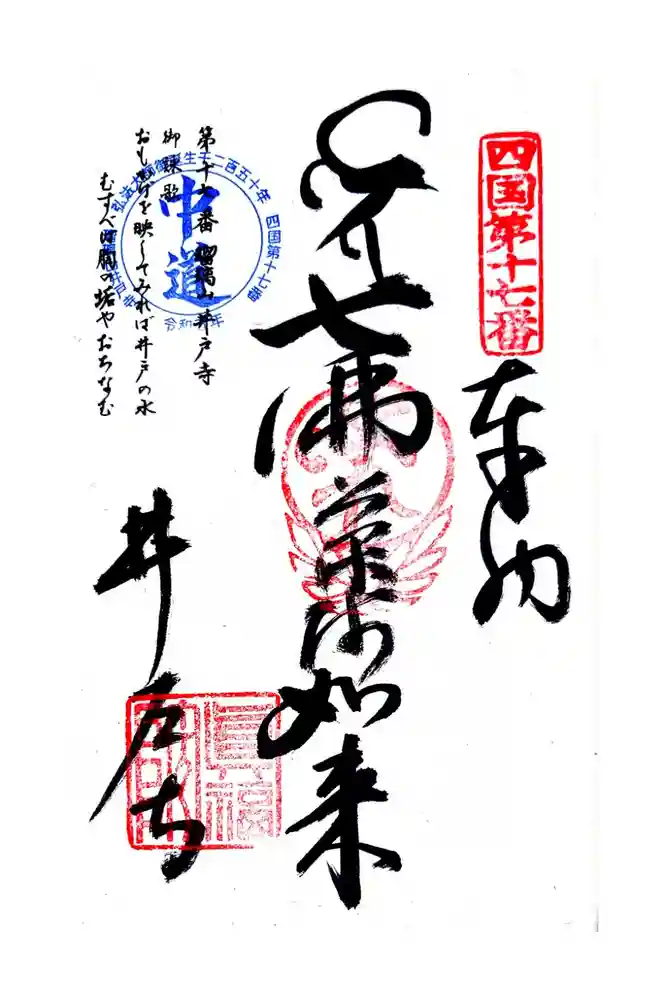 四国第十七番
奉納
七佛薬師如来
井戸寺
第十七番 瑠璃山井戸寺
御詠歌
おもかげを映してみれば井戸の水
むすべば胸の垢やおちなむ
弘法大師御誕生千二百五十年 四国第十七番
中道